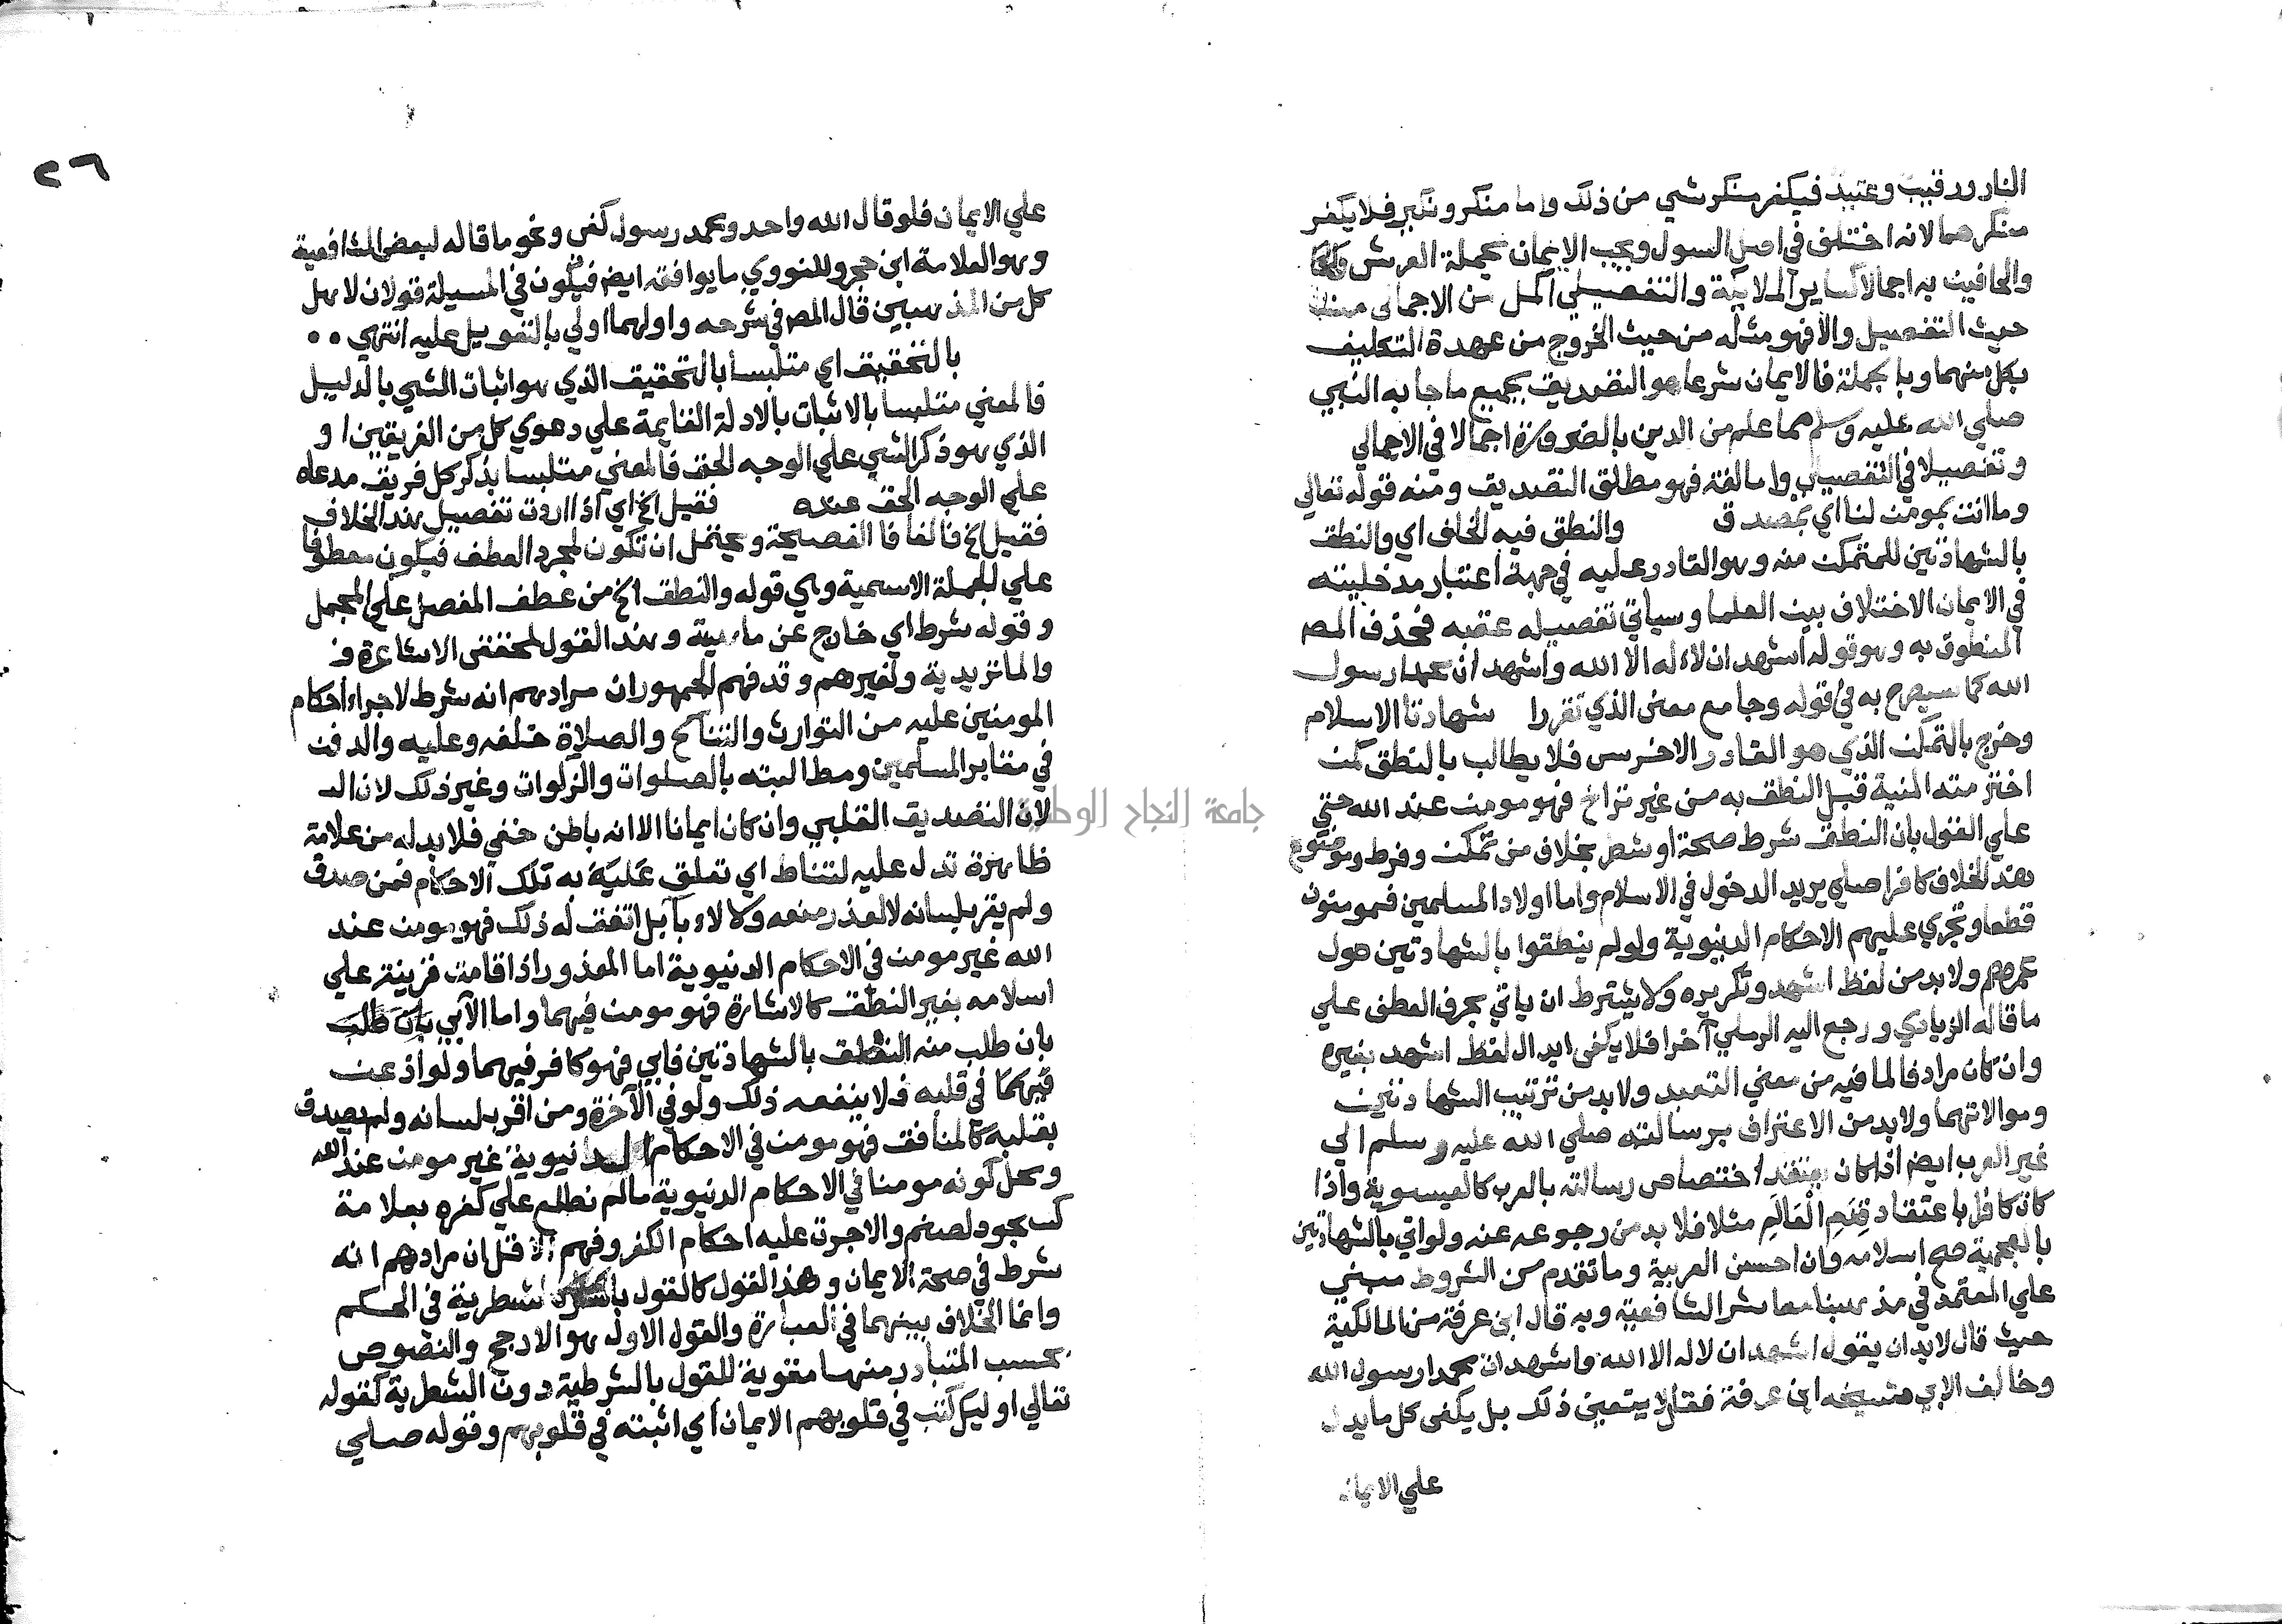 النار ورقيب وعتيد فيكفر منكر شي من ذلك واما منكر ونكير فلا يكفر
منكرهما لانه اختلف في اصل السول ويجب الايمان بحملة العرش
والحافين به اجمالا كساير الملايكة والتفصيلي اكمل من الاجمالي من
حيث التفصيل والافهو مثله من حيث الخروج من عهدة التكليف
بكل منهما وبالجملة فالايمان شرعا هو التصديق بجميع ما جا به النبي
صلي الله عليه وسلم مما علم من الدين بالضرورة اجمالا في الاجمالي
وتفصيلا في التفصيلي واما لغة فهو مطلق التصديق ومنه قوله تعالي
وما انت بمومن لنا اي بمصدق والنطق فيه الخلف اي والنطق
بالشهادتين للمتمكن منه وهو القادر عليه في جهة اعتبار مدخليته
في الايمان الاختلاف بين العلما وسياتي تفصيله عقبه فحذف المص
المنطوق به وهو قوله اشهد ان لا اله الا الله واشهد ان محمدا رسول
الله كما سيصرح به في قوله وجامع معني الذي تقررا شهادتا الاسلام
وخرج بالتمكن الذي هو القادر الاخرس فلا يطالب بالنطق كمن
اخترمته المنية قبل النطق به من غير تراخ فهو مومن عند الله حتي
علي القول بان النطق شرط صحة او شطر بخلاف من تمكن وفرط وموضوع
هذا الخلاف كافر اصلي يريد الدخول في الاسلام واما اولاد المسلمين فمومنون
قطعا وتجري عليهم الاحكام الدنيوية ولو لم ينطقوا بالشهادتين طول
عمرهم ولا بد من لفظ اشهد وتكريره ولا يشترط ان ياتي بحرف العطف علي
ما قاله الزيادي ورجع اليه الرملي آخرا فلا يكفي ابدال لفظ اشهد بغيره
وان كان مرادفا لما فيه من معني التعبد ولا بد من ترتيب الشهادتين
وموالاتهما ولا بد من الاعتراف برسالته صلي الله عليه وسلم الي
غير العرب ايض اذا كان يعتقد اختصاص رسالته بالعرب كالعيسوية واذا
كان كافرا باعتقاد قدم العالم مثلا فلا بد من رجوعه عنه ولو اتي بالشهادتين
بالعجمية صح اسلامه وان احسن العربية وما تقدم من الشروط مبني
علي المعتمد في مذهبنا معاشر الشافعية وبه قال ابن عرفة من المالكية
حيث قال لا بد ان يقول اشهد ان لا اله الا الله واشهد ان محمدا رسول الله
وخالف الابي شيخه ابن عرفة فقال لا يتعين ذلك بل يكفي كل ما يدل
علي الايمان
٢٦
علي الايمان فلو قال الله واحد ومحمد رسول كفي ونحو ما قاله لبعض الشافعية
وهو العلامة ابن حجر وللنووي ما يوافقه ايض فيكون في المسيلة قولان لاهل
كل من المذهبين قال المص في شرحه واولهما اولي بالتعويل عليه انتهي
بالتحقيق اي متلبسا بالتحقيق الذي هو اثبات الشي بالدليل
فالمعني متلبسا بالاثبات بالادلة القايمة علي دعوي كل من الفريقين او
الذي هو ذكر الشي علي الوجه الحق فالمعني متلبسا بذكر كل فريق مدعاه
علي الوجه الحق عنده فقيل الخ اي اذا اردت تفصيل هذا الخلاف
فقيل الخ فالفا فا الفصيحة ويحتمل ان تكون لمجرد العطف فيكون معطوفا
علي الجملة الاسمية وهي قوله والنطق الخ من عطف المفصل علي المجمل
وقوله شرط اي خارج عن ماهيته وهذا القول لمحققي الاشاعرة و
والماتريدية ولغيرهم وقد فهم الجمهور ان مرادهم انه شرط لاجراء احكام
المومنين عليه من التوارث والتناكح والصلاة خلفه وعليه والدفن
في مقابر المسلمين ومطالبته بالصلوات والزكوات وغير ذلك لان الـ
لان التصديق القلبي وان كان ايمانا الا انه باطن خفي فلا بد له من علامة
ظاهرة تدل عليه لتناط اي تعلق عليه به تلك الاحكام فمن صدق
ولم يقر بلسانه لا لعذر منعه ولا لاباء بل اتفق له ذلك فهو مومن عند
الله غير مومن في الاحكام الدنيوية اما المعذور اذا قامت قرينة علي
اسلامه بغير النطق كالاشارة فهو مومن فيهما واما الآبي بان طلب
بان طلب منه النطق بالشهادتين فابي فهو كافر فيهما ولو اذعن
في قلبه فلا ينفعه ذلك ولو في الآخرة ومن اقر بلسانه ولم يصدق
بقلبه كالمنافق فهو مومن في الاحكام الدنيوية غير مومن عند الله
ومحل كونه مومنا في الاحكام الدنيوية ما لم نطلع علي كفره بعلامة
كسجود لصنم والا جرت عليه احكام الكفر وفهم الاقل ان مرادهم انه
شرط في صحة الايمان وهذا القول كالقول بالشطرية في الحكم
وانما الخلاف بينهما في العبارة والقول الاول هو الارجح والنصوص
بحسب المتبادر منها مقوية للقول بالشرطية دون الشطرية كقوله
تعالي اوليك كتب في قلوبهم الايمان اي اثبته في قلوبهم وقوله صلي
جامعة النجاح الوطنية